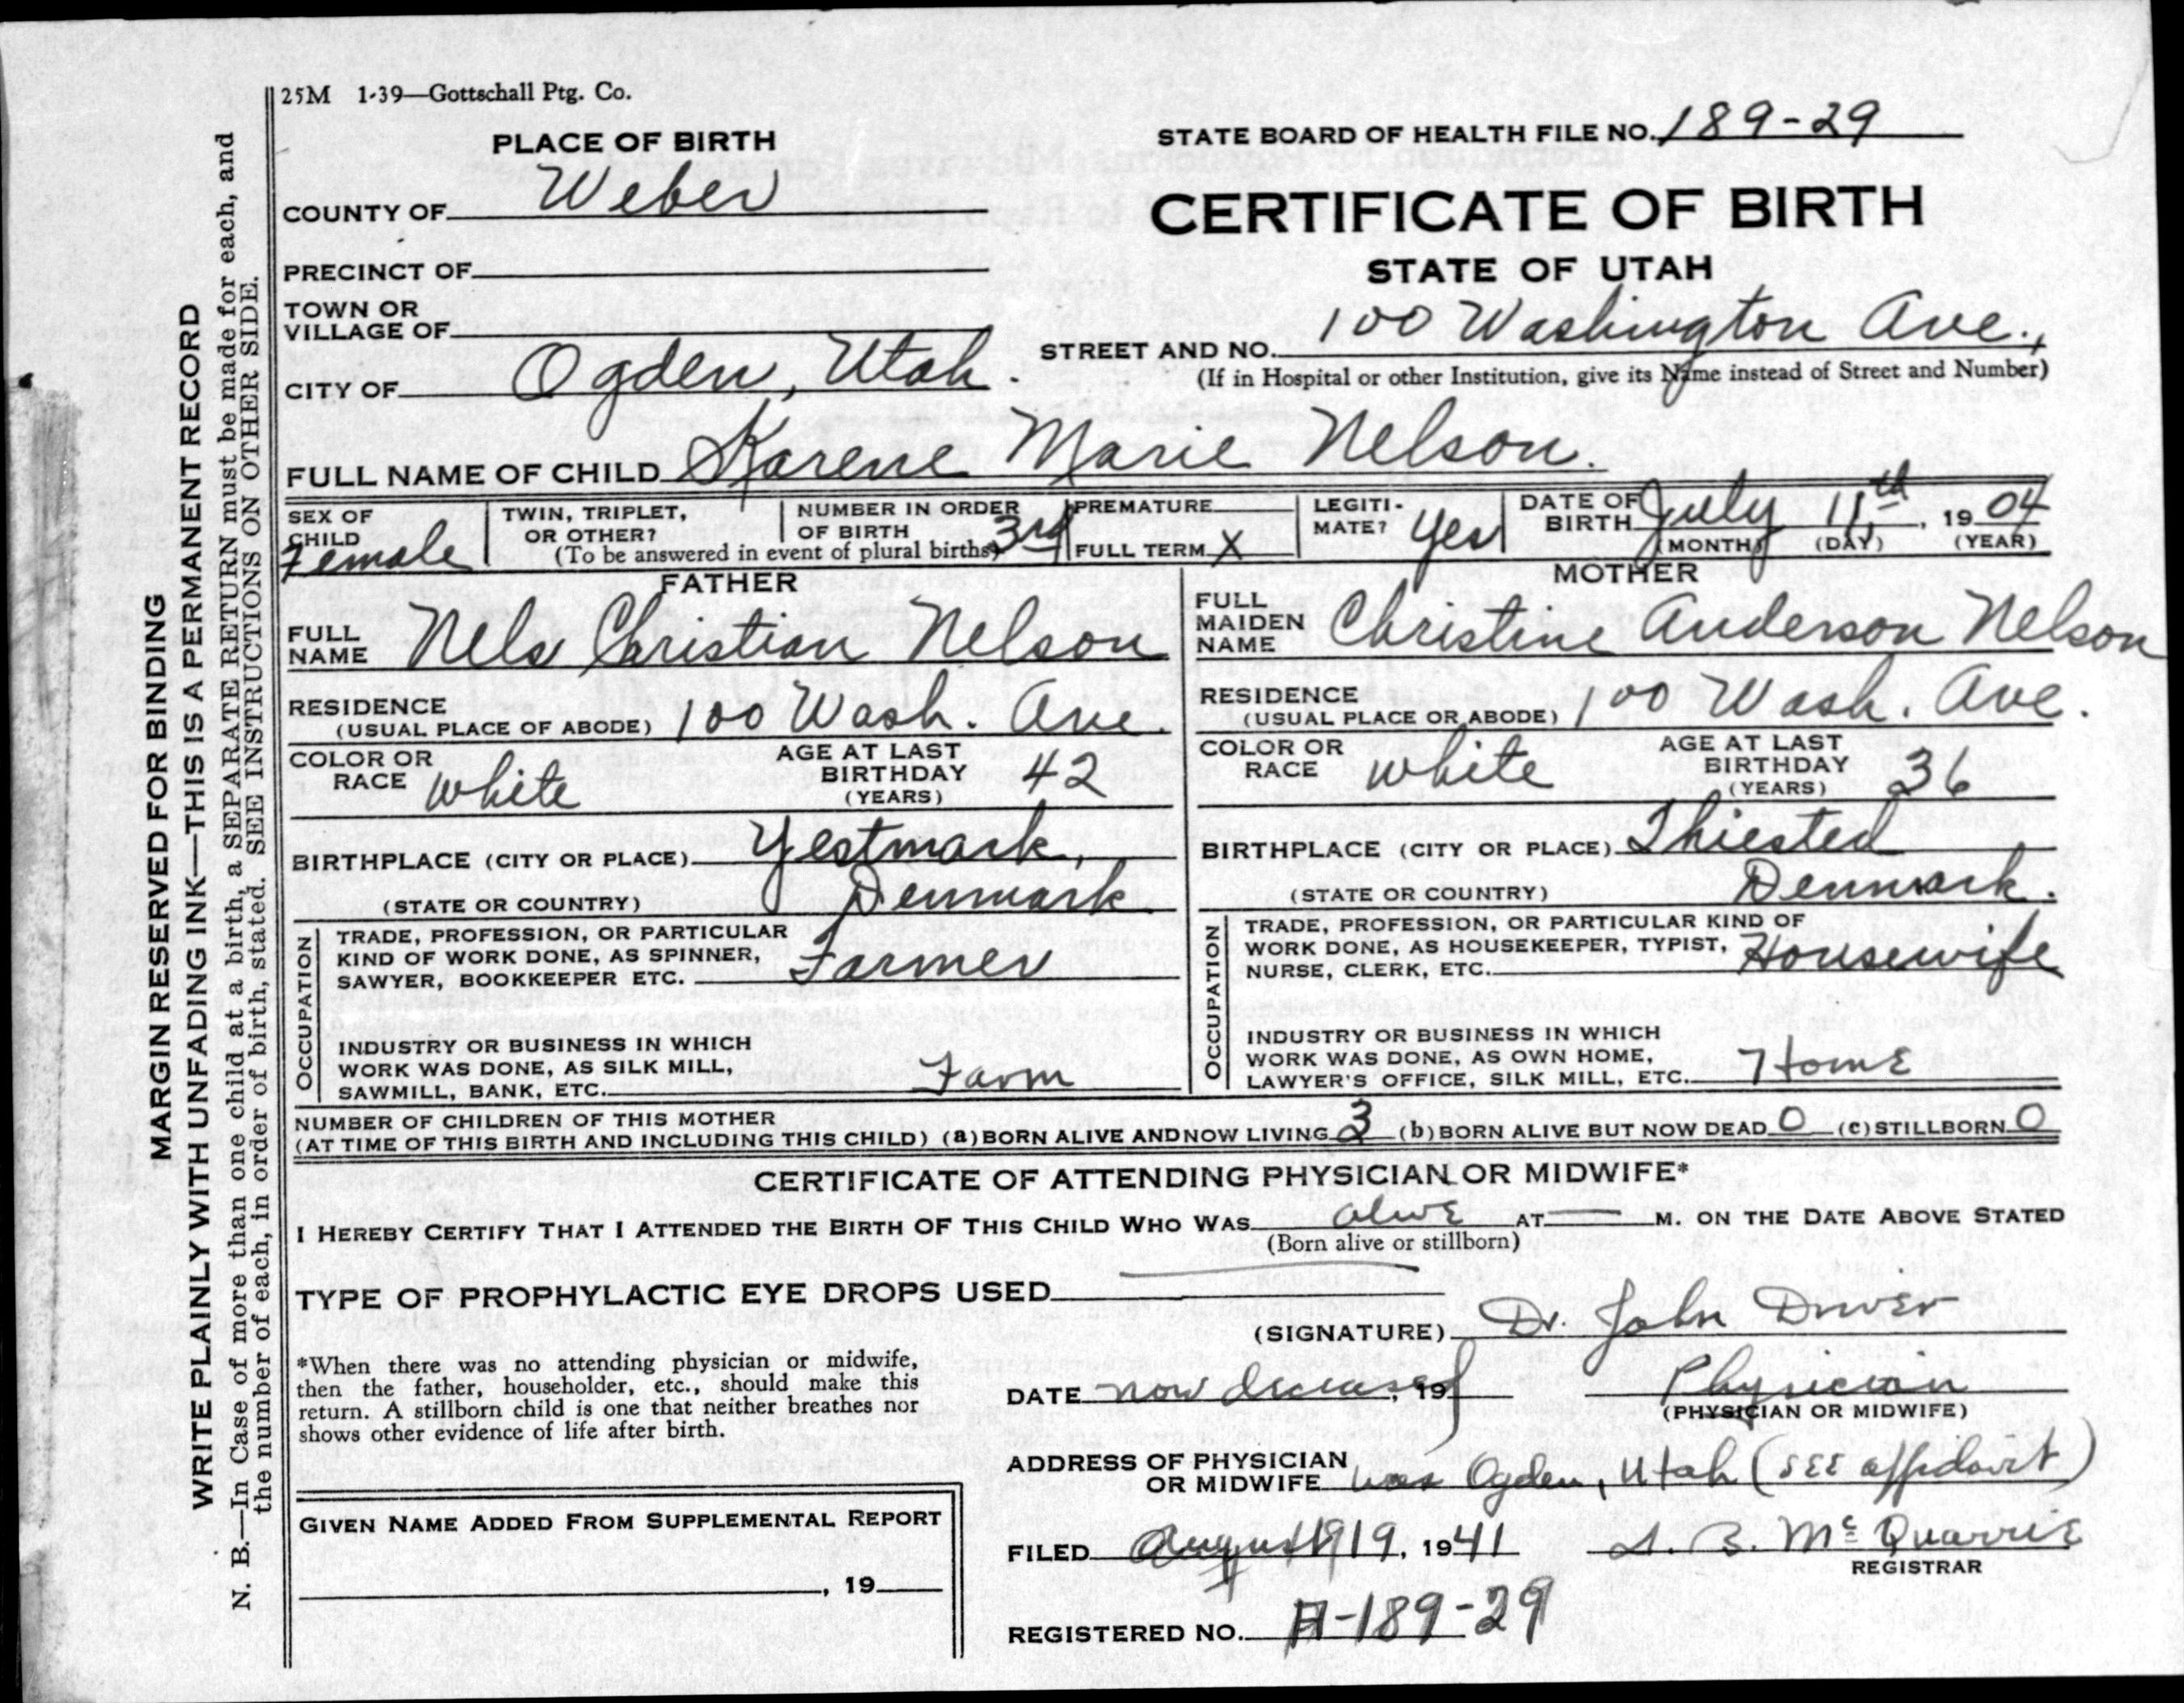 25M 1-39—Gottschall Ptg. Co.
PLACE OF BIRTH
STATE BOARD OF HEALTH FILE NO. 189-29
COUNTY OF Weber
CERTIFICATE OF BIRTH
PRECINCT OF
STATE OF UTAH
TOWN OR
VILLAGE OF
STREET AND NO. 100 Washington Ave.,
(If in Hospital or other Institution, give its Name instead of Street and Number)
CITY OF Ogden, Utah.
FULL NAME OF CHILD Karene Marie Nelson.
SEX OF
CHILD
Female
TWIN, TRIPLET,
OR OTHER?
NUMBER IN ORDER
OF BIRTH 3rd
(To be answered in event of plural births)
PREMATURE
FULL TERM X
LEGITI-
MATE? Yes
DATE OF
BIRTH July 11th, 1904
(MONTH) (DAY) (YEAR)
FATHER
FULL
NAME Nels Christian Nelson
RESIDENCE
(USUAL PLACE OF ABODE) 100 Wash. Ave.
COLOR OR
RACE white
AGE AT LAST
BIRTHDAY 42
(YEARS)
BIRTHPLACE (CITY OR PLACE) Yestmark,
(STATE OR COUNTRY) Denmark
OCCUPATION
TRADE, PROFESSION, OR PARTICULAR
KIND OF WORK DONE, AS SPINNER,
SAWYER, BOOKKEEPER ETC. Farmer
INDUSTRY OR BUSINESS IN WHICH
WORK WAS DONE, AS SILK MILL,
SAWMILL, BANK, ETC. Farm
MOTHER
FULL
MAIDEN
NAME Christine Anderson Nelson
RESIDENCE
(USUAL PLACE OR ABODE) 100 Wash. Ave.
COLOR OR
RACE white
AGE AT LAST
BIRTHDAY 36
(YEARS)
BIRTHPLACE (CITY OR PLACE) Thiested
(STATE OR COUNTRY) Denmark.
OCCUPATION
TRADE, PROFESSION, OR PARTICULAR KIND OF
WORK DONE, AS HOUSEKEEPER, TYPIST,
NURSE, CLERK, ETC. Housewife
INDUSTRY OR BUSINESS IN WHICH
WORK WAS DONE, AS OWN HOME,
LAWYER'S OFFICE, SILK MILL, ETC. Home
NUMBER OF CHILDREN OF THIS MOTHER
(AT TIME OF THIS BIRTH AND INCLUDING THIS CHILD) (a) BORN ALIVE AND NOW LIVING 3 (b) BORN ALIVE BUT NOW DEAD 0 (c) STILLBORN 0
CERTIFICATE OF ATTENDING PHYSICIAN OR MIDWIFE*
I HEREBY CERTIFY THAT I ATTENDED THE BIRTH OF THIS CHILD WHO WAS alive AT — M. ON THE DATE ABOVE STATED
(Born alive or stillborn)
TYPE OF PROPHYLACTIC EYE DROPS USED
(SIGNATURE) Dr. John Driver
*When there was no attending physician or midwife,
then the father, householder, etc., should make this
return. A stillborn child is one that neither breathes nor
shows other evidence of life after birth.
DATE now deceased, 19
Physician
(PHYSICIAN OR MIDWIFE)
ADDRESS OF PHYSICIAN
OR MIDWIFE was Ogden, Utah (SEE affidavit)
GIVEN NAME ADDED FROM SUPPLEMENTAL REPORT
, 19
FILED August 19, 1941
S. B. McQuarrie
REGISTRAR
REGISTERED NO. A-189-29
MARGIN RESERVED FOR BINDING
WRITE PLAINLY WITH UNFADING INK—THIS IS A PERMANENT RECORD
N. B.—In Case of more than one child at a birth, a SEPARATE RETURN must be made for each, and
the number of each, in order of birth, stated. SEE INSTRUCTIONS ON OTHER SIDE.